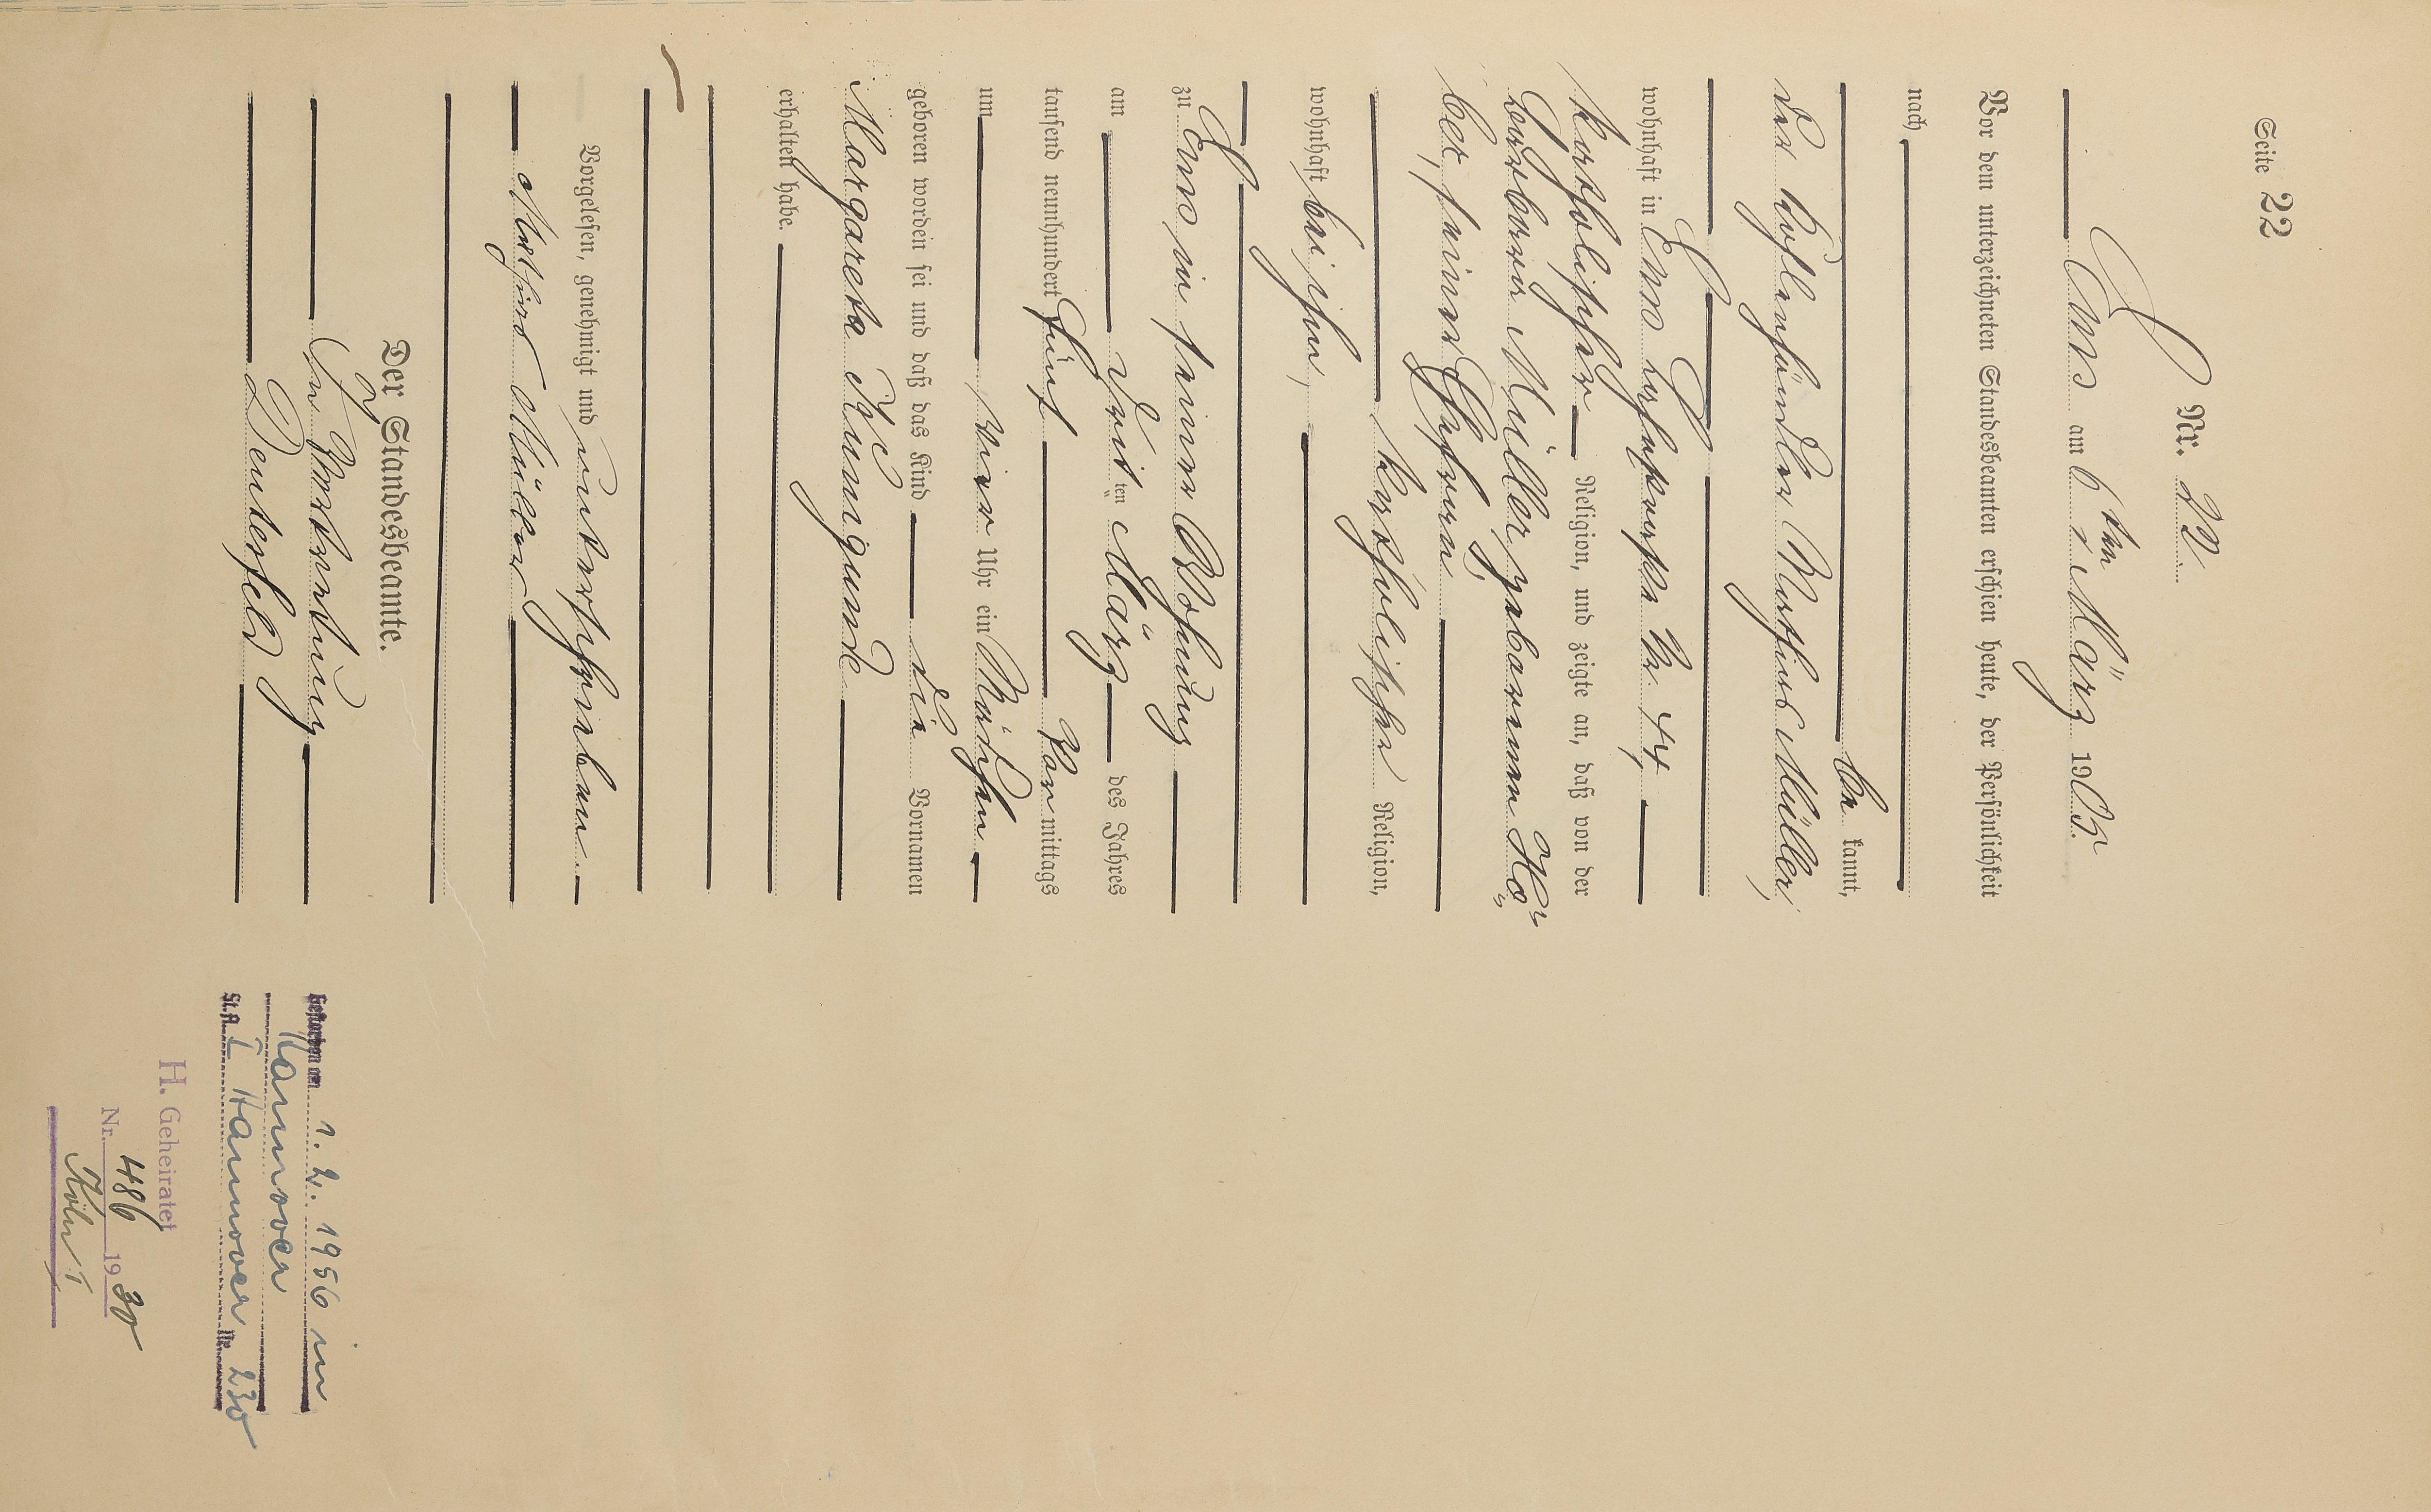 Seite 22
Nr. 22
Ems am 6ten März 1905.
Vor dem unterzeichneten Standesbeamten erschien heute, der Persönlichkeit
nach
be kannt,
der Kohlenhändler Mathias Müller,
wohnhaft in Ems Lahnstraße Nr. 44,
katholischer Religion, und zeigte an, daß von der
geborenen Müller, geborenen Hö-
ber, seiner Ehefrau,
katholischer Religion,
wohnhaft bei ihm,
zu Ems in seiner Wohnung
am drit ten März des Jahres
tausend neunhundert fünf Vor mittags
um vier Uhr ein Mädchen
geboren worden sei und daß das Kind die Vornamen
Margareta Kunigunde
erhalten habe.
Vorgelesen, genehmigt und unterschrieben.
Mathias Müller
Der Standesbeamte.
In Vertretung
Deusterfeld
Gestorben am 1. 2. 1956 in
Hannover
St.A. I Hannover Nr. 230
H. Geheiratet
Nr. 486 1930
Köln I